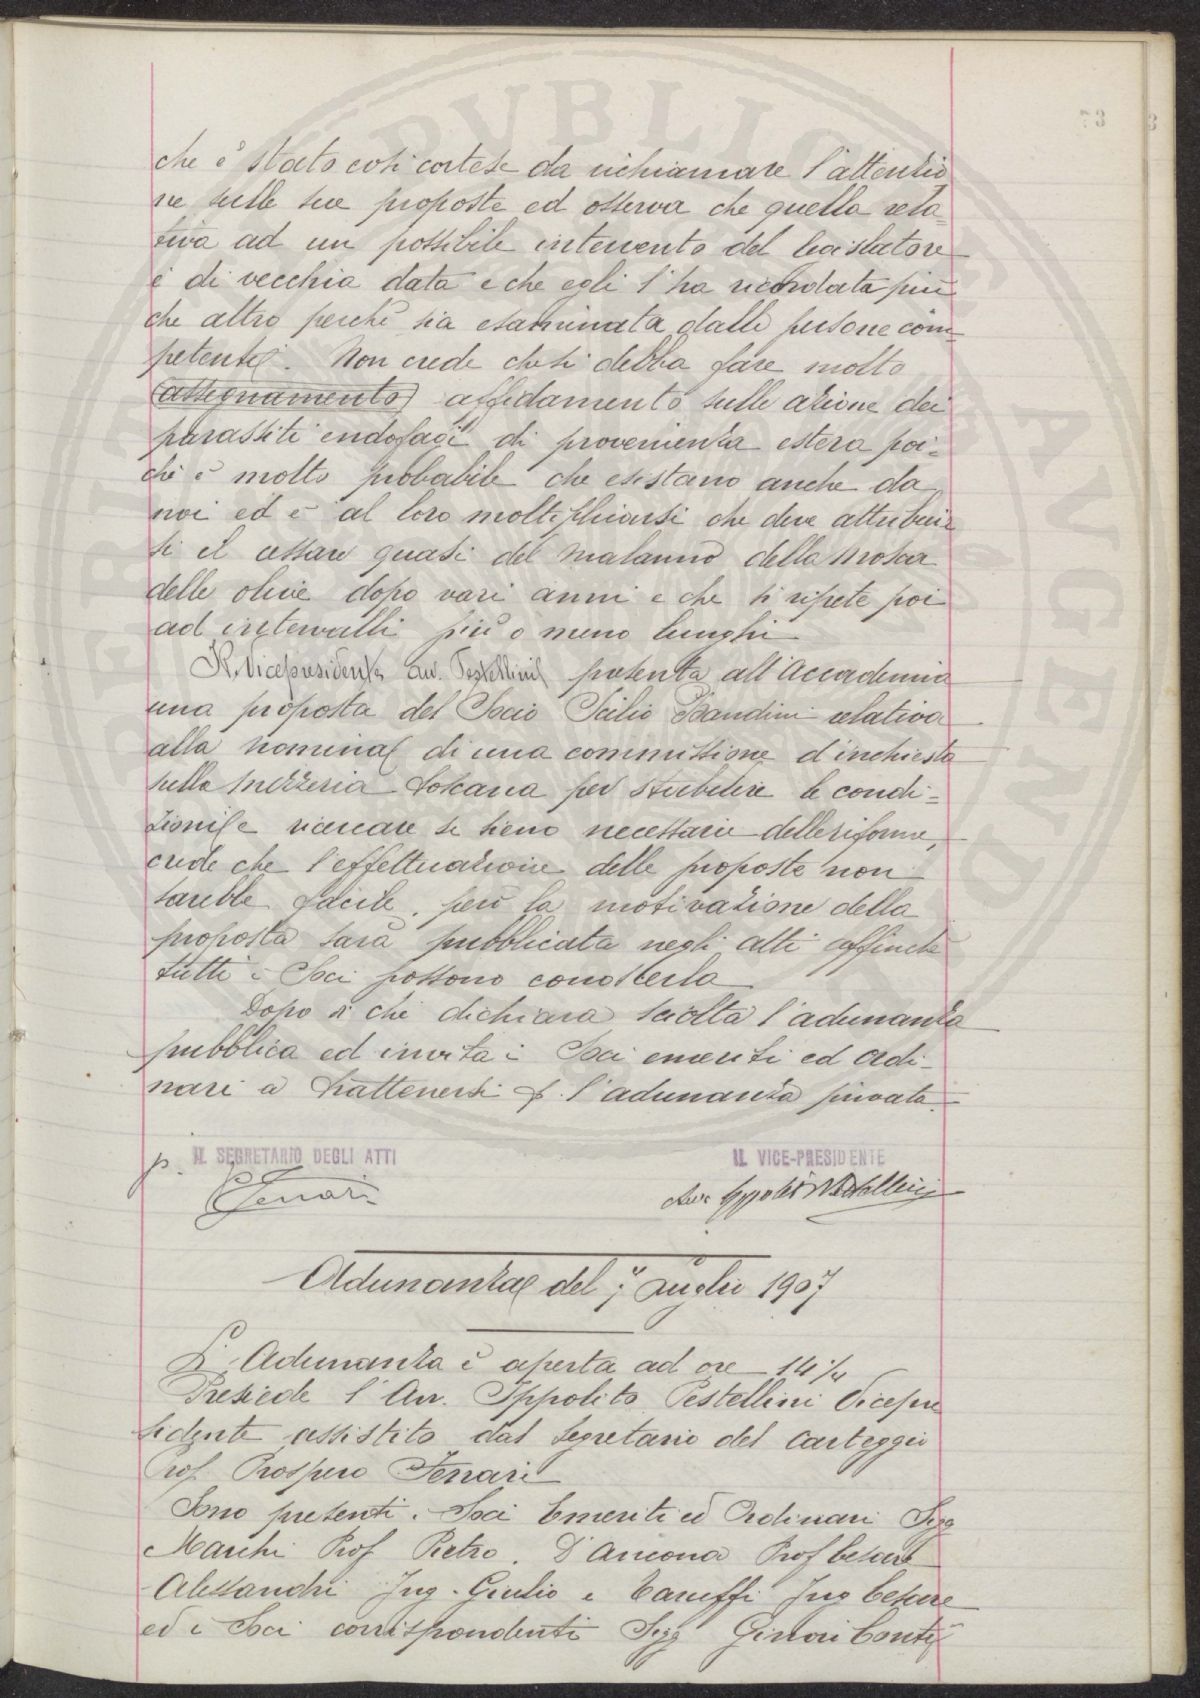 che è stato così cortese da richiamare l'attenzio
ne sulle sue proposte ed osserva che quella rela=
tiva ad un possibile intervento del legislatore
è di vecchia data e che egli l'ha ricordata più
che altro perchè sia esaminata dalle persone com=
petenti. Non crede che si debba fare molto
(assegnamento) affidamento sulle azione dei
parassiti endofagi di provenienza estera poi=
chè è molto probabile che esistano anche da
noi ed è al loro moltiplicarsi che deve attribuir
si il cessare quasi del malanno della mosca
delle olive dopo vari anni e che si ripete poi
ad intervalli più o meno lunghi
Il Vicepresidente avv. Pestellini presenta all'Accademia
una proposta del Socio Icilio Bandini relativa
alla nomina di una commissione d'inchiesta
sulla mezzeria toscana per stabilire le condi=
zioni e ricercare se sieno necessarie delle riforme,
crede che l'effettuazione delle proposte non
sarebbe facile, però la motivazione della
proposta sarà pubblicata negli atti affinchè
tutti i Soci possono conoscerla
Dopo di chè dichiara sciolta l'adunanza
pubblica ed invita i Soci emeriti ed ordi=
nari a trattenersi p. l'adunanza privata.
p. IL SEGRETARIO DEGLI ATTI IL VICE-PRESIDENTE
P Ferrari Avv. Ippolito Pestellini
Adunanza del 7 Luglio 1907
L'Adunanza è aperta ad ore 14 1/4
Presiede l'Avv. Ippolito Pestellini Vicepre
sidente assistito dal Segretario del Carteggio
Prof Prospero Ferrari
Sono presenti i Soci Emeriti ed Ordinari Sigg
Marchi Prof Pietro, D'Ancona Prof Cesare
Alessandri Ing. Giulio e Taruffi Ing Cesare
ed i Soci corrispondenti Sigg Ginori Conti